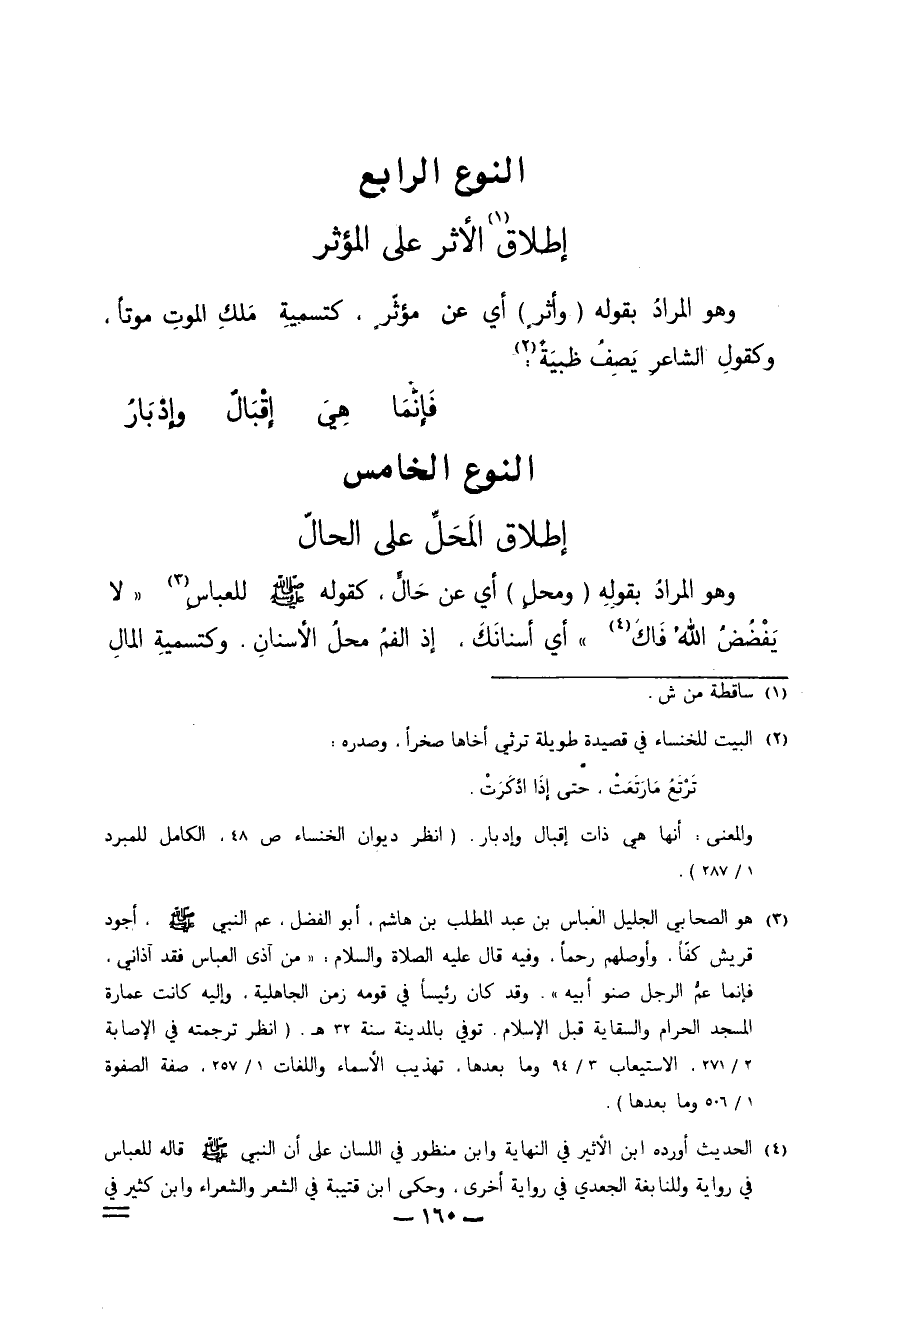 النوع الرابع
إطلاق(١) الأثر على المؤثر
وهو المرادُ بقوله ( وأثرٍ ) أي عن مؤثّرٍ ، كتسميةِ مَلكِ الموتِ موتاً ،
وكقولِ الشاعرِ يَصِفُ ظبيَةً(٢) :
فَإِنَّمَا هِيَ إقْبَالٌ وإدْبَارُ
النوع الخامس
إطلاق المَحَلِّ على الحالّ
وهو المرادُ بقولِهِ ( ومحلٍ ) أي عن حَالٍّ ، كقوله ﷺ للعباسِ(٣) « لا
يَفْضُضُ اللهُ فَاكَ(٤) » أي أسنانَكَ ، إذ الفمُ محلُ الأسنانِ . وكتسميةِ المالِ
(١) ساقطة من ش .
(٢) البيت للخنساء في قصيدة طويلة ترثي أخاها صخراً ، وصدره :
تَرْتَعُ مَارَتَعَتْ ، حتى إذَا ادْكَرَتْ .
والمعنى : أنها هي ذات إقبال وإدبار . ( انظر ديوان الخنساء ص ٤٨ ، الكامل للمبرد
١ / ٢٨٧ ) .
(٣) هو الصحابي الجليل العباس بن عبد المطلب بن هاشم ، أبو الفضل ، عم النبي ﷺ ، أجود
قريش كفّاً ، وأوصلهم رحماً ، وفيه قال عليه الصلاة والسلام : « من آذى العباس فقد آذاني ،
فإنما عمُّ الرجل صنو أبيه » . وقد كان رئيساً في قومه زمن الجاهلية ، وإليه كانت عمارة
المسجد الحرام والسقاية قبل الإسلام . توفي بالمدينة سنة ٣٢ هـ . ( انظر ترجمته في الإصابة
٢ / ٢٧١ ، الاستيعاب ٣ / ٩٤ وما بعدها ، تهذيب الأسماء واللغات ١ / ٢٥٧ ، صفة الصفوة
١ / ٥٠٦ وما بعدها ) .
(٤) الحديث أورده ابن الأثير في النهاية وابن منظور في اللسان على أن النبي ﷺ قاله للعباس
في رواية وللنابغة الجعدي في رواية أخرى ، وحكى ابن قتيبة في الشعر والشعراء وابن كثير في
— ١٦٠ —